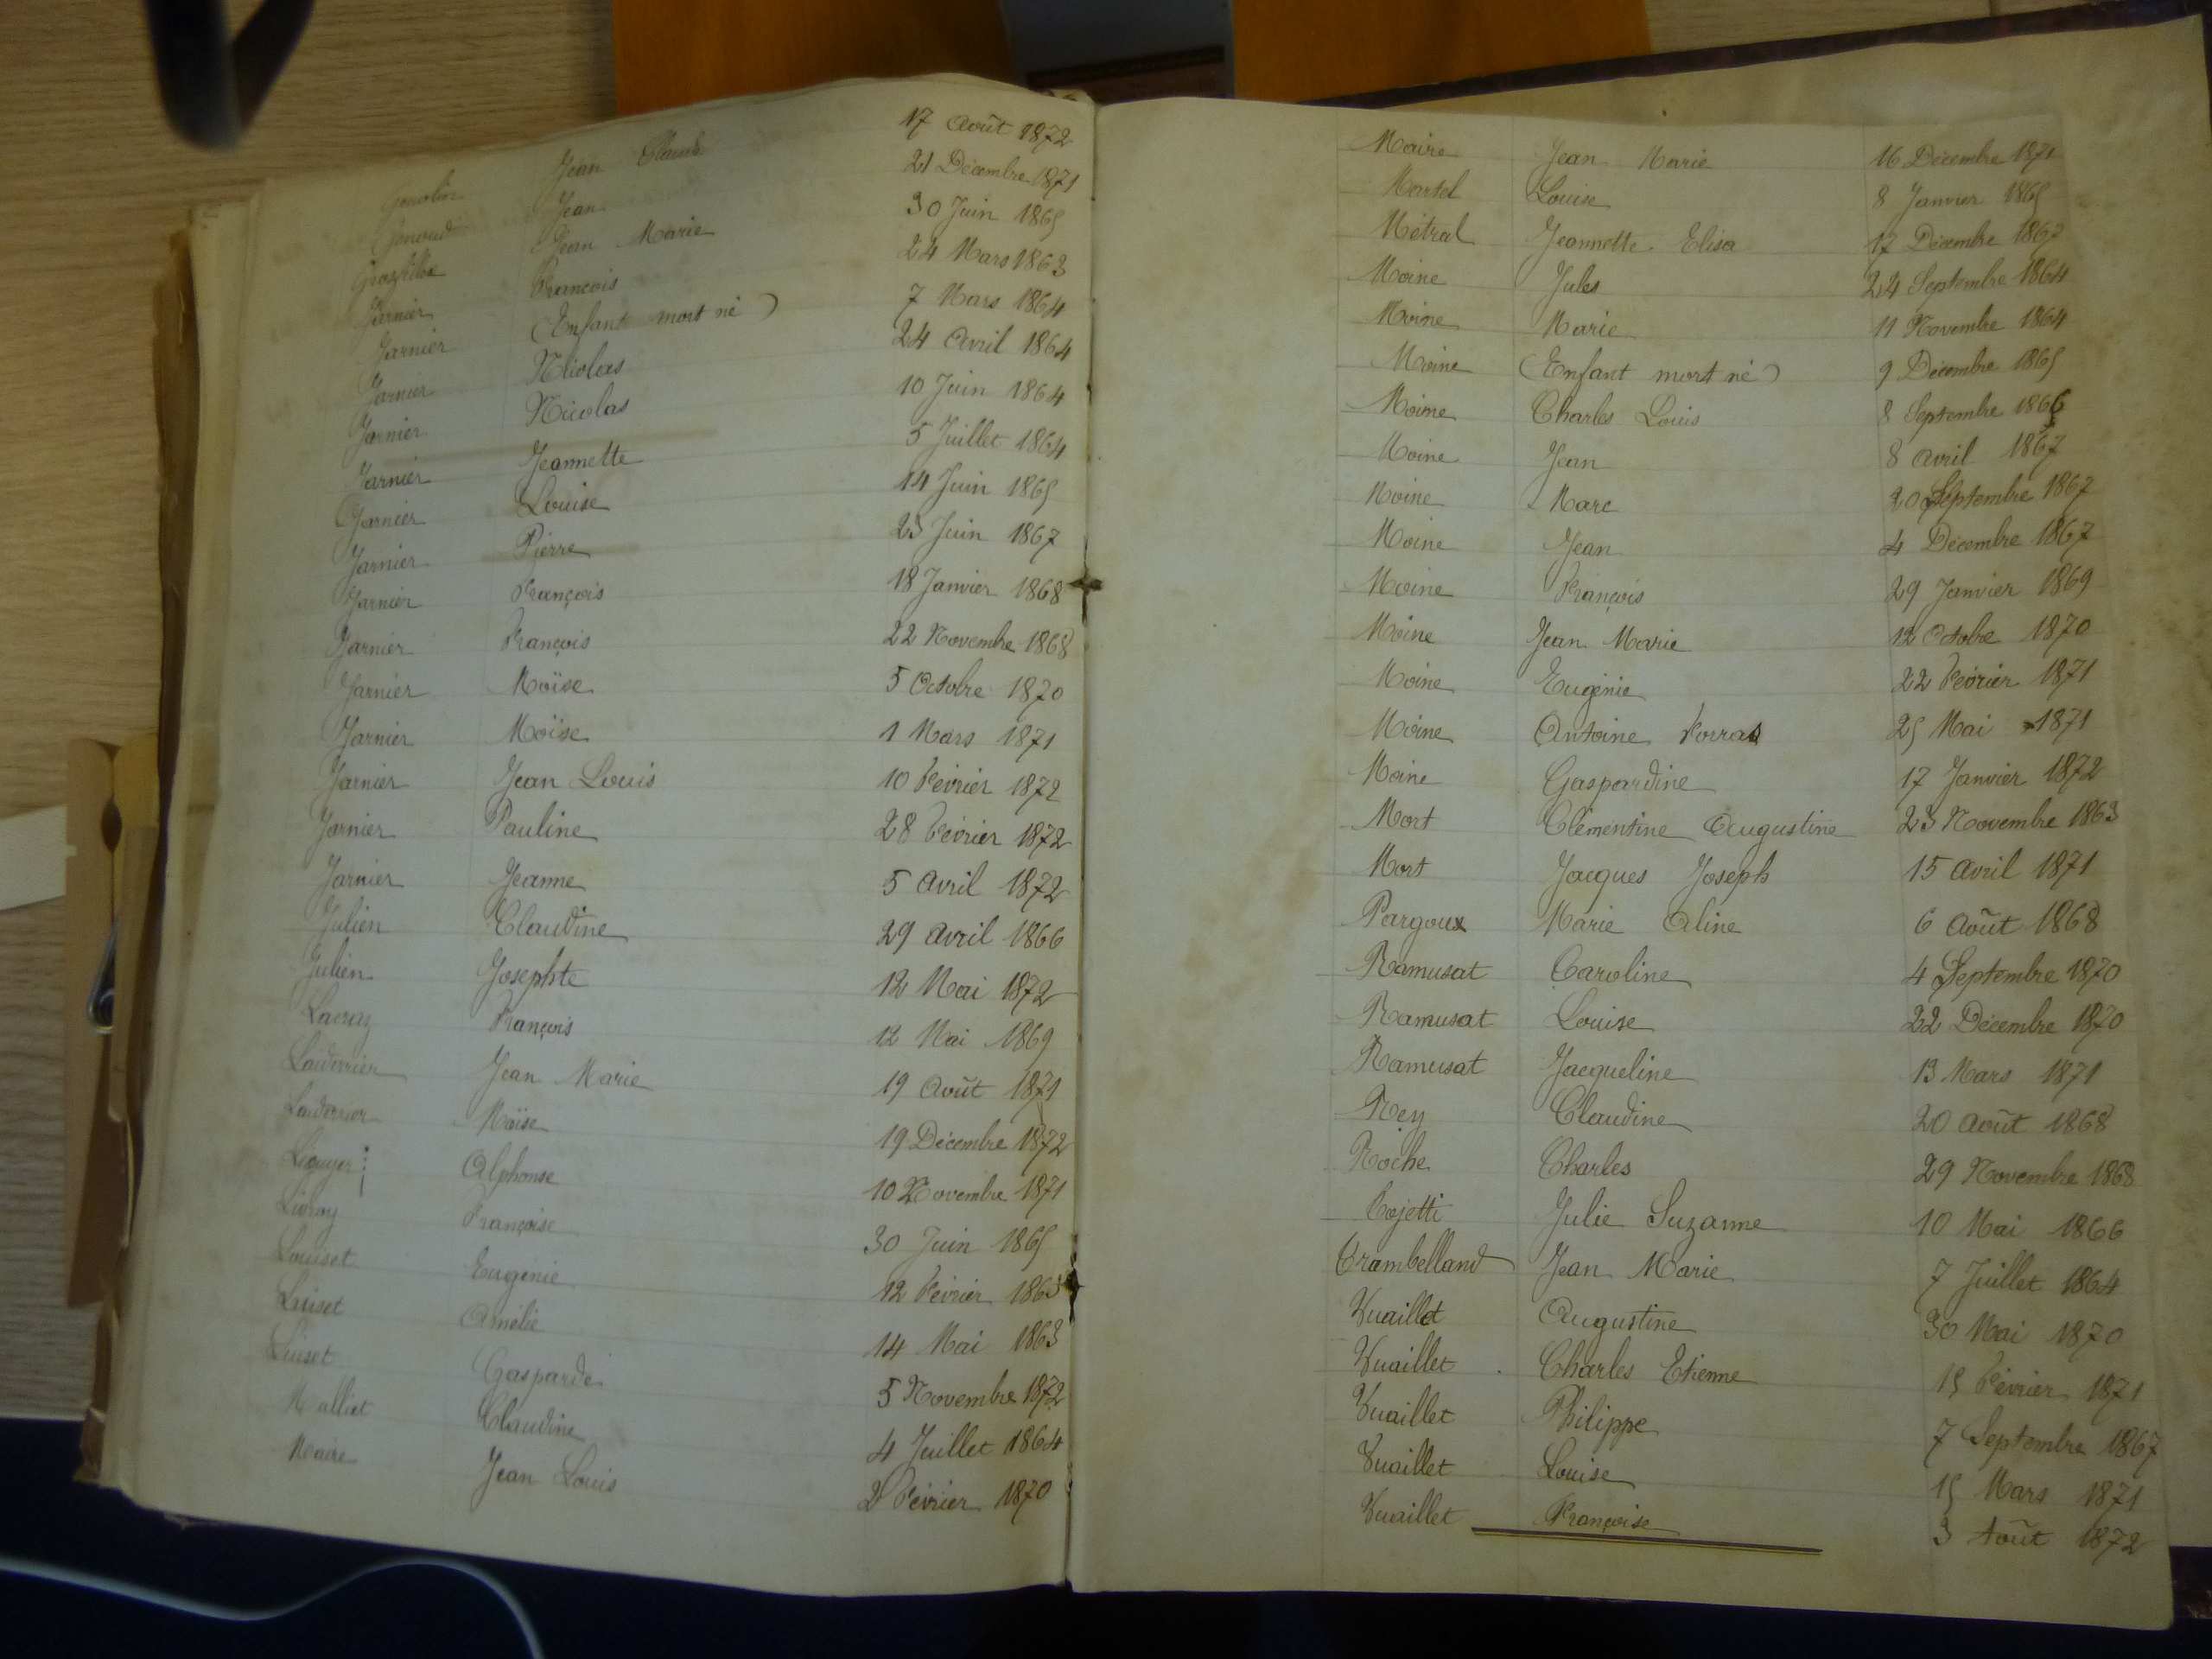 Jean Claude 17 Août 1872
Jean 21 Décembre 1871
Jean Marie 30 Juin 1865
Garnier François 24 Mars 1863
Garnier (Enfant mort né) 7 Mars 1864
Garnier Nicolas 24 Avril 1864
Garnier Nicolas 10 Juin 1864
Garnier Jeannette 5 Juillet 1864
Garnier Louise 14 Juin 1865
Garnier Pierre 23 Juin 1867
Garnier François 18 Janvier 1868
Garnier François 22 Novembre 1868
Garnier Moïse 5 Octobre 1870
Garnier Moïse 1 Mars 1871
Garnier Jean Louis 10 Février 1872
Garnier Pauline 28 Février 1872
Garnier Jeanne 5 Avril 1872
Julien Claudine 29 Avril 1866
Julien Josephte 12 Mai 1872
Lacraz François 12 Mai 1869
Laverrier Jean Marie 19 Août 1871
Laverrier Moïse 19 Décembre 1872
Alphonse 10 Novembre 1871
Françoise 30 Juin 1865
Louiset Eugénie 12 Février 1863
Louiset Amélie 14 Mai 1863
Louiset Gasparde 5 Novembre 1872
Malliet Claudine 4 Juillet 1864
Maire Jean Louis 2 Février 1870
Maire Jean Marie 16 Décembre 1871
Martel Louise 8 Janvier 1865
Métral Jeannette Elisa 17 Décembre 1867
Moine Jules 24 Septembre 1864
Moine Marie 11 Novembre 1864
Moine (Enfant mort né) 9 Décembre 1865
Moine Charles Louis 8 Septembre 1866
Moine Jean 8 Avril 1867
Moine Marc 20 Septembre 1867
Moine Jean 4 Décembre 1867
Moine François 29 Janvier 1869
Moine Jean Marie 12 Octobre 1870
Moine Eugénie 22 Février 1871
Moine Antoine Ferras 25 Mai 1871
Moine Gaspardine 17 Janvier 1872
Mort Clémentine Augustine 23 Novembre 1863
Mort Jacques Joseph 15 Avril 1871
Pargoux Marie Aline 6 Août 1868
Ramusat Caroline 4 Septembre 1870
Ramusat Louise 22 Décembre 1870
Ramusat Jacqueline 13 Mars 1871
Rey Claudine 20 Août 1868
Roche Charles 29 Novembre 1868
Tojetti Julie Suzanne 10 Mai 1866
Trambelland Jean Marie 7 Juillet 1864
Vuaillet Augustine 30 Mai 1870
Vuaillet Charles Etienne 15 Février 1871
Vuaillet Philippe 7 Septembre 1867
Vuaillet Louise 15 Mars 1871
Vuaillet Françoise 3 Août 1872